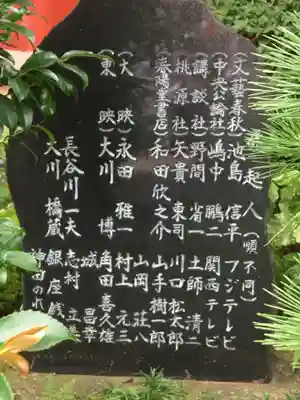 発起人（順不同）
（文藝春秋）池島 信平 フジテレビ
（中央公論社）嶋中 鵬二 関西テレビ
（講談社）野間 省一 土師 清二
桃源社 矢貴 東司 川口 松太郎
春陽堂書店 和田 欣之介 山手 樹一郎
山岡 荘八
（大映）永田 雅一 村上 元三
（東映）大川 博 角田 喜久雄
城 昌幸
長谷川 一夫 志村 立美
大川 橋蔵 銀座